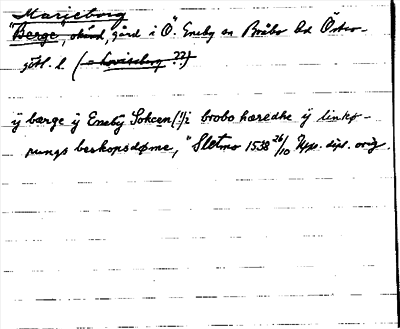 Marieborg
"Berge, okänd, gård i Ö. Eneby sn Bråbo hd Öster-
götl. l. (= Loviseberg ??)
ij bærge ij Eneby Sokcen (!) i brobo hæredhe ij linkø-
pungs beskopsdøme, " Sletmo 1538 26/10 Upps. dipl. orig.